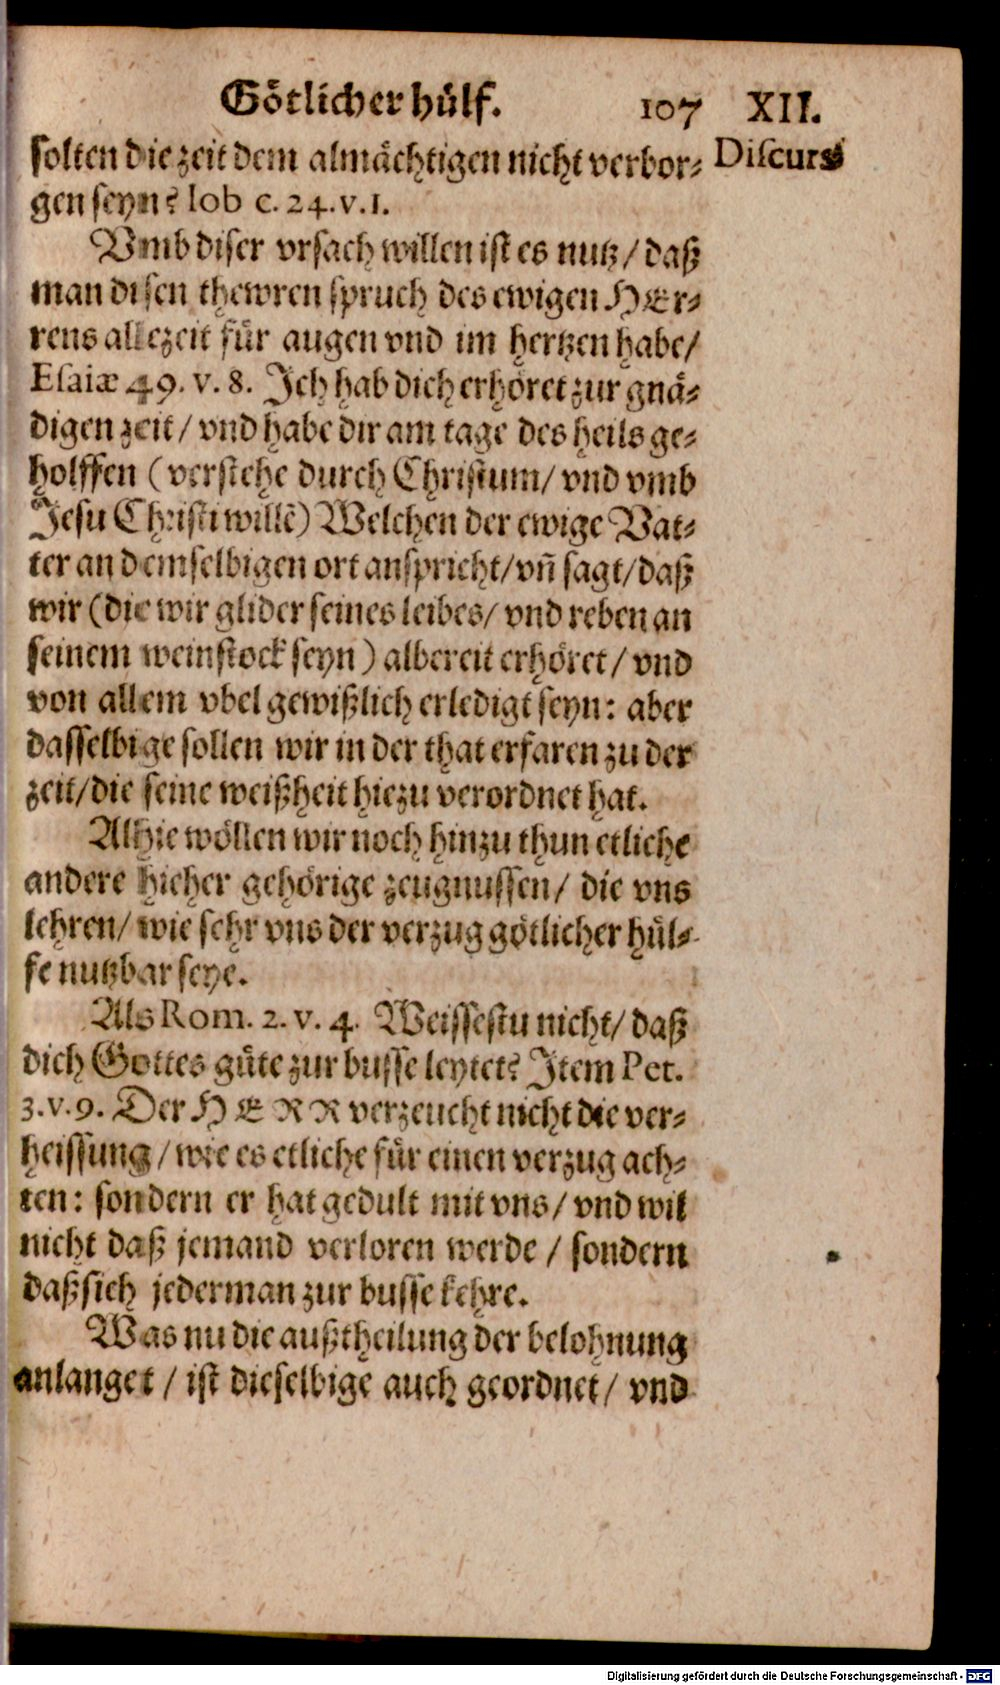 Götlicher hülf. 107 XII.
solten die zeit dem almächtigen nicht verbor- Discurs
gen seyn? Iob c. 24. v. 1.
Vmb diser vrsach willen ist es nutz / daß
man disen thewren spruch des ewigen HEr-
rens allezeit für augen vnd im hertzen habe /
Esaiæ 49. v. 8. Ich hab dich erhöret zur gnä-
digen zeit / vnd habe dir am tage des heils ge-
holffen (verstehe durch Christum / vnd vmb
Jesu Christi willẽ) Welchen der ewige Vat-
ter an demselbigen ort anspricht / vñ sagt / daß
wir (die wir glider seines leibes / vnd reben an
seinem weinstock seyn) albereit erhöret / vnd
von allem vbel gewißlich erledigt seyn: aber
dasselbige sollen wir in der that erfaren zu der
zeit / die seine weißheit hiezu verordnet hat.
Alhie wöllen wir noch hinzu thun etliche
andere hieher gehörige zeugnussen / die vns
lehren / wie sehr vns der verzug götlicher hül-
fe nutzbar seye.
Als Rom. 2. v. 4. Weissestu nicht / daß
dich Gottes güte zur busse leytet? Item Pet.
3. v. 9. Der HERR verzeucht nicht die ver-
heissung / wie es etliche für einen verzug ach-
ten: sondern er hat gedult mit vns / vnd wil
nicht daß jemand verloren werde / sondern
daß sich jederman zur busse kehre.
Was nu die außtheilung der belohnung
anlanget / ist dieselbige auch geordnet / vnd
Digitalisierung gefördert durch die Deutsche Forschungsgemeinschaft - DFG